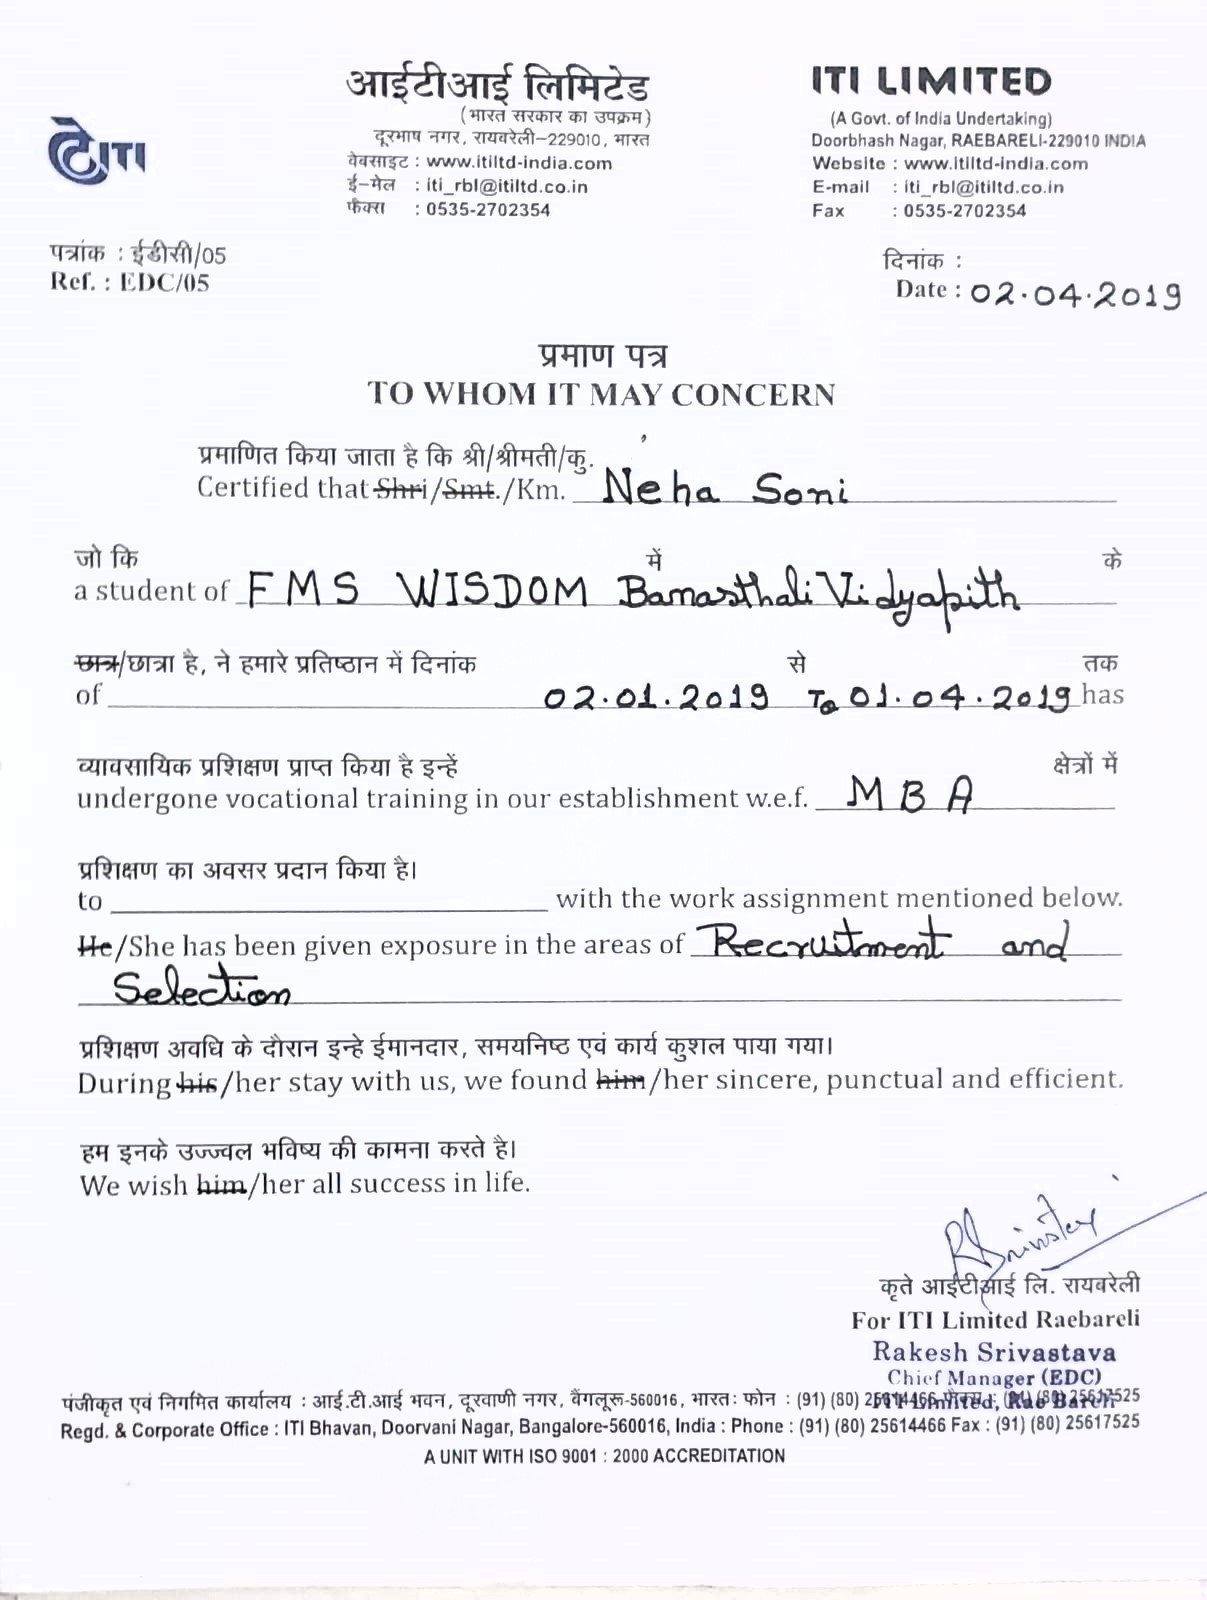 आईटीआई लिमिटेड
(भारत सरकार का उपक्रम)
दूरभाष नगर, रायबरेली-229010, भारत
वेबसाइट : www.itiltd-india.com
ई-मेल : iti_rbl@itiltd.co.in
फैक्स : 0535-2702354
ITI LIMITED
(A Govt. of India Undertaking)
Doorbhash Nagar, RAEBARELI-229010 INDIA
Website : www.itiltd-india.com
E-mail : iti_rbl@itiltd.co.in
Fax : 0535-2702354
ITI
पत्रांक : ईडीसी/05
Ref. : EDC/05
दिनांक :
Date : 02.04.2019
प्रमाण पत्र
TO WHOM IT MAY CONCERN
प्रमाणित किया जाता है कि श्री/श्रीमती/कु.
Certified that Shri/Smt./Km. Neha Soni
जो कि में के
a student of FMS WISDOM Banasthali Vidyapith
छात्र/छात्रा है, ने हमारे प्रतिष्ठान में दिनांक से तक
of 02.01.2019 To 01.04.2019 has
व्यावसायिक प्रशिक्षण प्राप्त किया है इन्हें क्षेत्रों में
undergone vocational training in our establishment w.e.f. MBA
प्रशिक्षण का अवसर प्रदान किया है।
to with the work assignment mentioned below.
He/She has been given exposure in the areas of Recruitment and
Selection
प्रशिक्षण अवधि के दौरान इन्हे ईमानदार, समयनिष्ठ एवं कार्य कुशल पाया गया।
During his/her stay with us, we found him/her sincere, punctual and efficient.
हम इनके उज्ज्वल भविष्य की कामना करते है।
We wish him/her all success in life.
कृते आईटीआई लि. रायबरेली
For ITI Limited Raebareli
Rakesh Srivastava
Chief Manager (EDC)
ITI Limited, Rae Bareli
पंजीकृत एवं निगमित कार्यालय : आई.टी.आई भवन, दूरवाणी नगर, बैंगलूरू-560016, भारतः फोन : (91) (80) 25614466 फैक्स : (91) (80) 25617525
Regd. & Corporate Office : ITI Bhavan, Doorvani Nagar, Bangalore-560016, India : Phone : (91) (80) 25614466 Fax : (91) (80) 25617525
A UNIT WITH ISO 9001 : 2000 ACCREDITATION